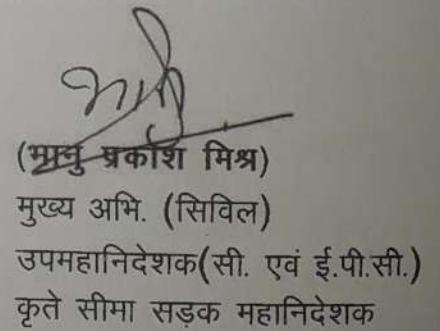 (भानु प्रकाश मिश्र)
मुख्य अभि. (सिविल)
उपमहानिदेशक(सी. एवं ई.पी.सी.)
कृते सीमा सड़क महानिदेशक